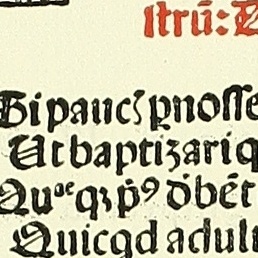 ſtrū:
Si pauc̃ ꝓnoſſe
Ut baptizari q
Quᵒᵉ qʒ p̄⁹ ðbēt
Quicqd adul